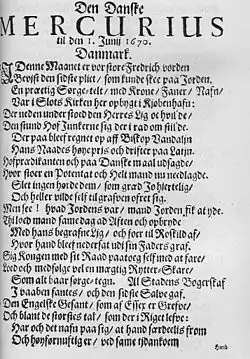 Den Danske
MERCURIUS
til den 1. Junij 1670.
Danmark.
I Denne Maanet er vor store Fredrich vorden
Beviist den sidste pligt / som kunde skee paa Jorden,
En prægtig Sørge-telt / med Krone / Faner / Nafn /
Var i Slots Kirken her opbygt i Kjøbenhafn:
Der neden under stoed den Herres Lig ophøit de /
Den stund Hof Junkerne sig der i rad om stil'de.
Der paa bleef regnet op aff Biskop Vandalin
Hans Naades høye priis och drifter paa Latin.
Hofpredikanten och paa Danske maal udsagde /
Hvor stoer en Potentat och Helt mand nu nedlagde.
Slet ingen hørde dem / som græd jo hiertelig /
Och heller vilde self til grafven ofret sig.
Men see! hvad Jordens var / mand Jorden fik at yde.
Thi loed mand samme dag ad Afften och opbryde
Med hans begrafne Lig / och foer til Roskild af /
Hvor hand bleef nedersat udi sin Faders graf.
Sig Kongen med sit Raad paatoeg self med at fare /
Loed och medfølge vel en mægtig Rytter-Skare /
Som alt baar sørge-tegn. All Stadens Bogerskaf
J vaaben stantes / och den sidste Salve gaf.
Den Engelske Gesant / som af Essex er Grefve /
Och blant de størstes tal / som der i Riget lefve:
Har och det nafn paa sig / at hand særdeelis from
Och høyfornuftig er / ved samme tidan kom
Hend